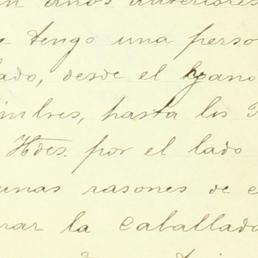 en años anteriores
e tengo una perso
lado, desde el
imbres, hasta los
Hdes. por el lado
unas rasones de e
rar la caballad